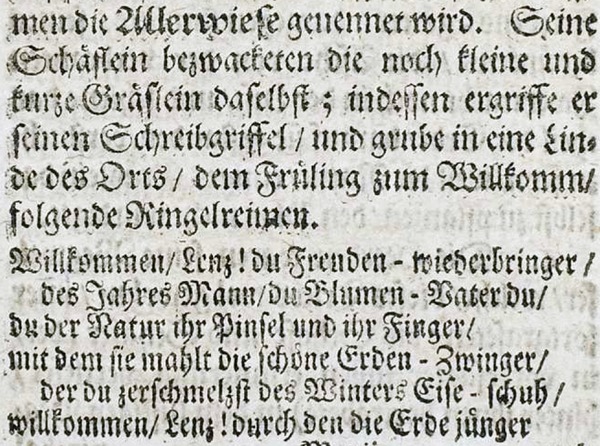 men die Allerwiese genennet wird. Seine
Schäflein bezwacketen die noch kleine und
kurze Gräslein daselbst; indessen ergriffe er
seinen Schreibgriffel / und grube in eine Lin-
de des Orts / dem Früling zum Willkomm/
folgende Ringelreimen.
Willkommen/ Lenz! du Freuden-wiederbringer /
des Jahres Mann/ du Blumen-Vater du/
du der Natur ihr Pinsel und ihr Finger/
mit dem sie mahlt die schöne Erden-Zwinger/
der du zerschmelzst des Winters Eise-schuh/
willkommen/ Lenz! durch den die Erde jünger